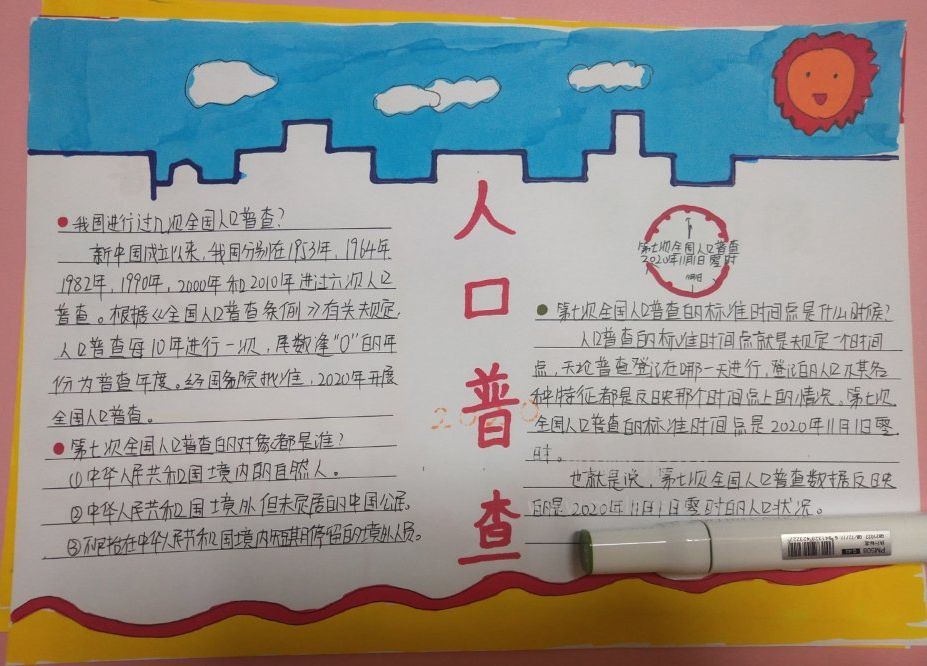 我国进行过几次全国人口普查?
新中国成立以来,我国分别在1953年,1964年
1982年,1990年,2000年和2010年进过六次人口
普查。根据《全国人口普查条例》有关规定,
人口普查每10年进行一次,尾数逢“0”的年
份为普查年度。经国务院批准,2020年开展
全国人口普查。
第七次全国人口普查的对象都是谁?
①中华人民共和国境内的自然人。
②中华人民共和国境外但未定居的中国公民。
③不包括在中华人民共和国境内短期停留的境外人员。
人口普查
2020
第七次全国人口普查
2020年11月1日零时
第七次全国人口普查的标准时间点是什么时候?
人口普查的标准时间点就是规定一个时间
点,无论普查登记在哪一天进行,登记的人口及其各
种特征都是反映那个时间点上的情况。第七次
全国人口普查的标准时间点是2020年11月1日零
时。
也就是说,第七次全国人口普查数据反映
的是2020年11月1日零时的人口状况。
PM508